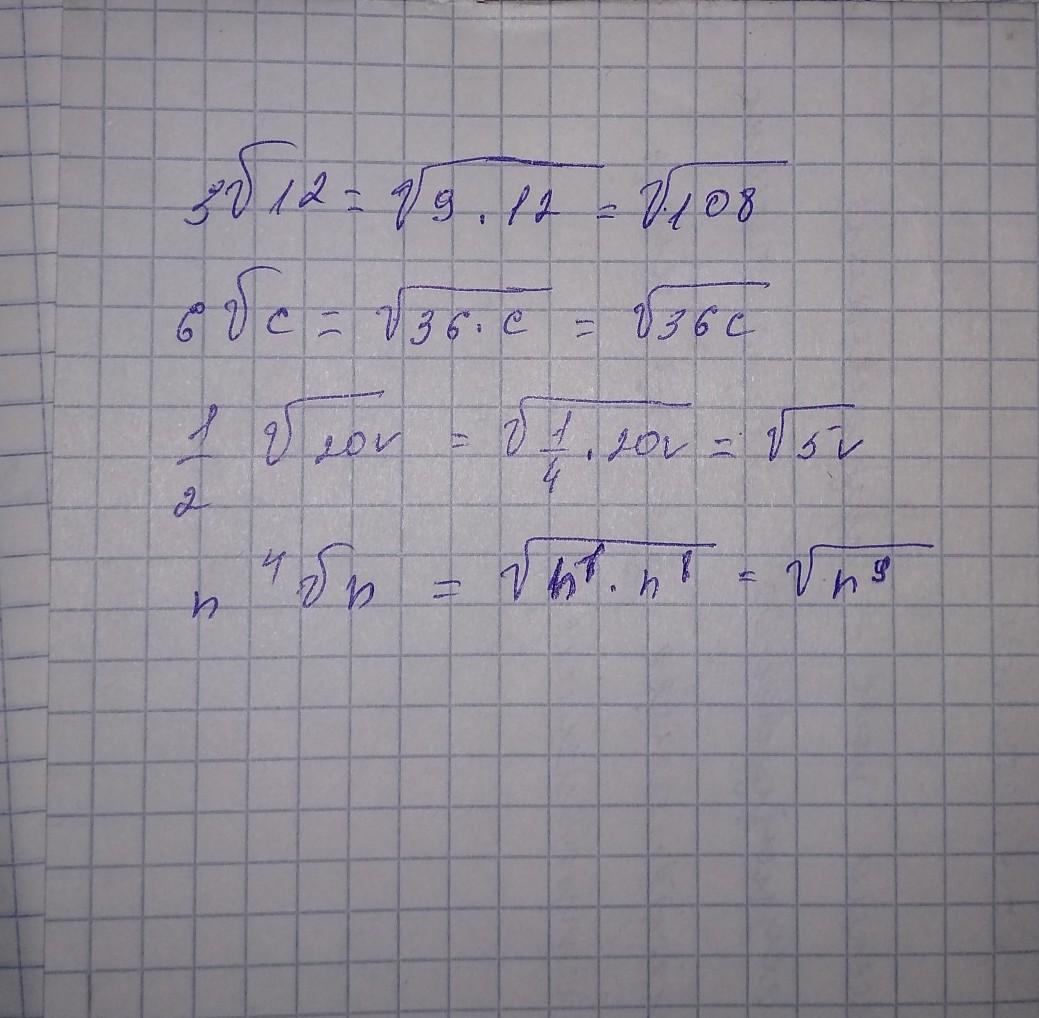 3√12 = √9 . 12 = √108
6√c = √36 . c = √36c
1/2 √20v = √1/4 . 20v = √5v
n⁴√n = √n⁸ . n¹ = √n⁹